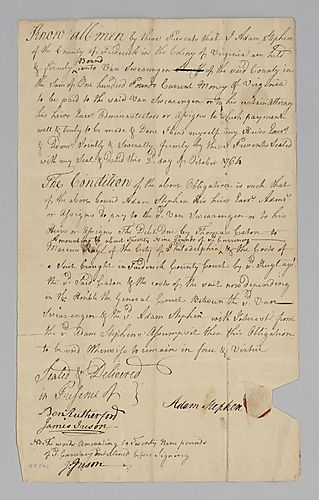 Know all men by these Presents that I Adam Stephen
of the County of Frederick in the Colony of Virginia am held
& firmly Bound unto Van Swearingen of the said County in
the Sum of One hundred Pounds Current Money of Virginia
to be paid to the said Van Swearingen or to his certain Attorney
his heirs Execrs Administrators or Assigns to which payment
well & truly to be made & Done I bind myself my Heirs Execrs
& Admrs Jointly & Severally firmly by these Presents Sealed
with my Seal & Dated this 3d day of October 1764
The Condition of the above Obligation is such that
if the above bound Adam Stephen his heirs Execrs Admrs
or Assigns Do pay to the sd Van Swearingen or to his
Heirs or Assigns The Debt Due by Thomas Caton to
Amounting to about twenty Nine Pounds of sd Currency
of the City of Philadelphia & the Costs of
a Suit brought in Frederick County Court by sd
the sd Said Caton & the costs of the suit now depending
in the Honble the General Court Between the sd Van
Swearengen & the sd Adam Stephen with Interest from
the sd Adam Stephens Assumpsit then this Obligation
to be void Otherwise to remain in force & Virtue
Sealed & Delivered
in Presence of
Adam Stephen
Ben Rutherford
James Juson
NB The words Amounting to twenty Nine pounds
of sd Currency interlined before Signing
Juson